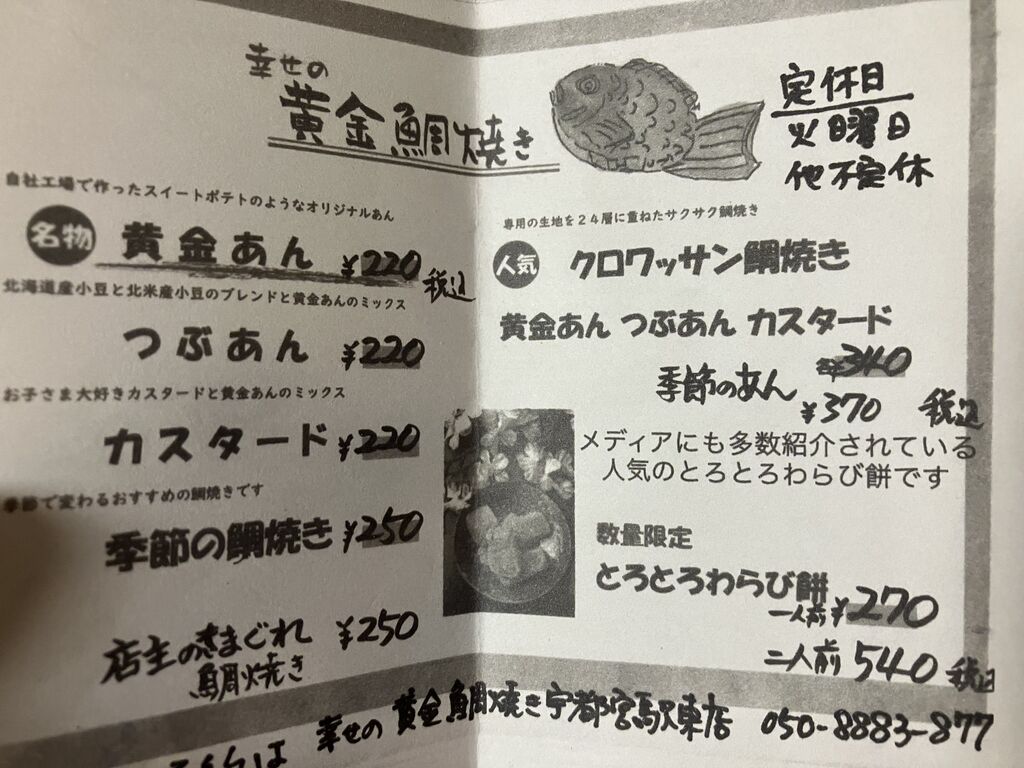 幸せの
黄金鯛焼き
定休日
火曜日
他不定休
自社工場で作ったスイートポテトのようなオリジナルあん
名物 黄金あん ¥220 税込
北海道産小豆と北米産小豆のブレンドと黄金あんのミックス
つぶあん ¥220
お子さま大好きカスタードと黄金あんのミックス
カスタード ¥220
季節で変わるおすすめの鯛焼きです
季節の鯛焼き ¥250
店主のきまぐれ ¥250
鯛焼き
専用の生地を24層に重ねたサクサク鯛焼き
人気 クロワッサン鯛焼き
黄金あん つぶあん カスタード
¥340
季節のあん
¥370 税込
メディアにも多数紹介されている
人気のとろとろわらび餅です
数量限定
とろとろわらび餅
一人前 ¥270
二人前 540 税込
幸せの 黄金鯛焼き宇都宮駅東店 050-8883-877